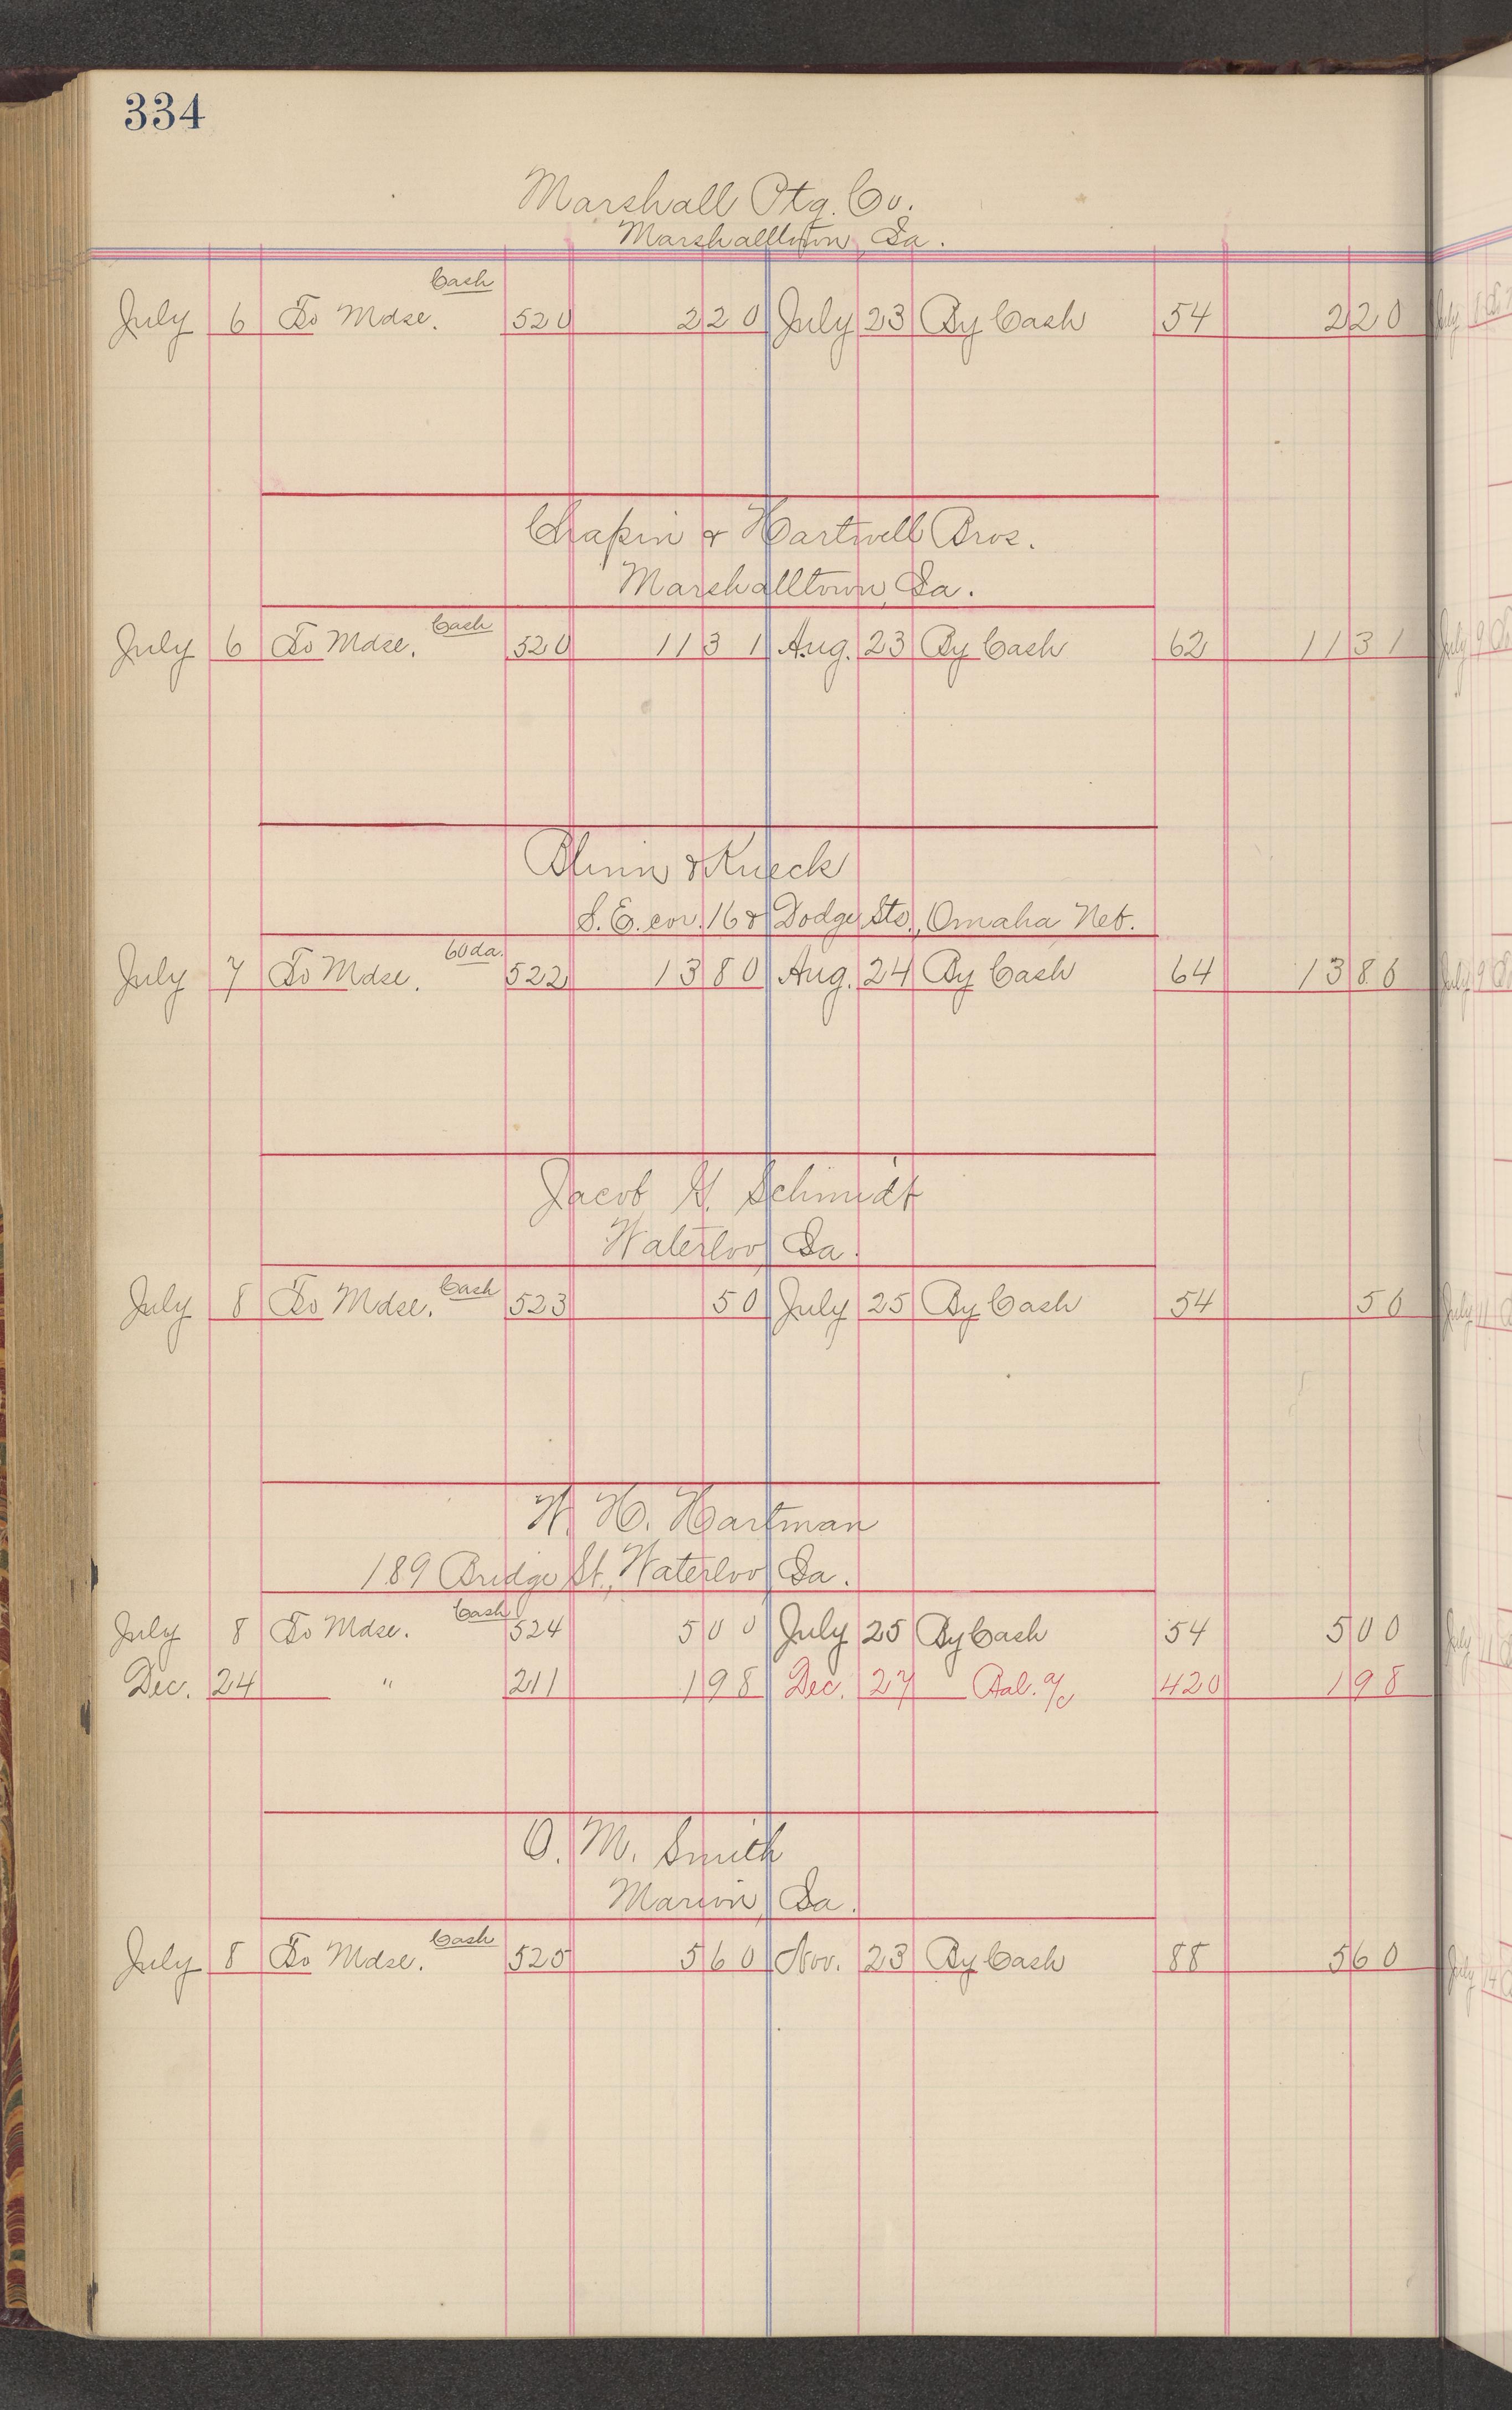 334
Marshall Ptg. Co.
Marshalltown, Ia.
Cash
July 6 To Mdse. 520 2 20 July 23 By Cash 54 2 20
Chapin & Hartwell Bros.
Marshalltown, Ia.
Cash
July 6 To Mdse. 520 11 31 Aug. 23 By Cash 62 11 31
Blinn & Kueck
S. E. cor. 16 & Dodge Sts., Omaha Neb.
60 da.
July 7 To Mdse. 522 13 80 Aug. 24 By Cash 64 13 80
Jacob G. Schmidt
Waterloo, Ia.
Cash
July 8 To Mdse. 523 50 July 25 By Cash 54 50
W. H. Hartman
189 Bridge St., Waterloo, Ia.
Cash
July 8 To Mdse. 524 5 00 July 25 By Cash 54 5 00
Dec. 24 " 211 1 98 Dec. 27 Bal. a/c 420 1 98
O. M. Smith
Marion, Ia.
Cash
July 8 To Mdse. 525 5 60 Nov. 23 By Cash 88 5 60